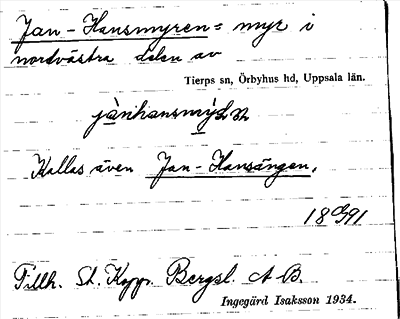 Jan-Hansmyren = myr i
nordvästra delen av
Tierps sn, Örbyhus hd, Uppsala län.
Kallas även Jan-Hansängen,
Tillh. St. Kopp. Bergsl. A B.
Ingegärd Isaksson 1934.